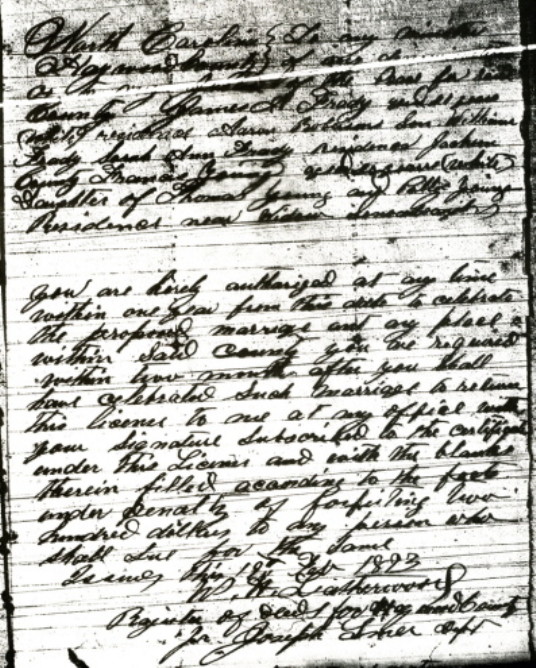 North Carolina } To any minister
Haywood County }
County James H. Frady
White residence Aaron Son William
Frady Sarah Ann Frady residence Jackson
County Francis Young (White)
Daughter of Thomas Young and Polly Young
Residence near
you are hirely authorized at any time
within one year from this date to celebrate
the proposed marriage at any place
within Said County you are required
within two month after you shall
have celebrated Such marriage to return
this license to me at my office with
your Signature Subscribed to the certificate
under this License and with the blanks
therein filled according to the facts
under penalty of forfeiting two
hundred dollars to any person who
shall Sue for the Same
Issued this Feb 1893
W. H. Leatherwood
Register of deeds for Haywood County
per Joseph